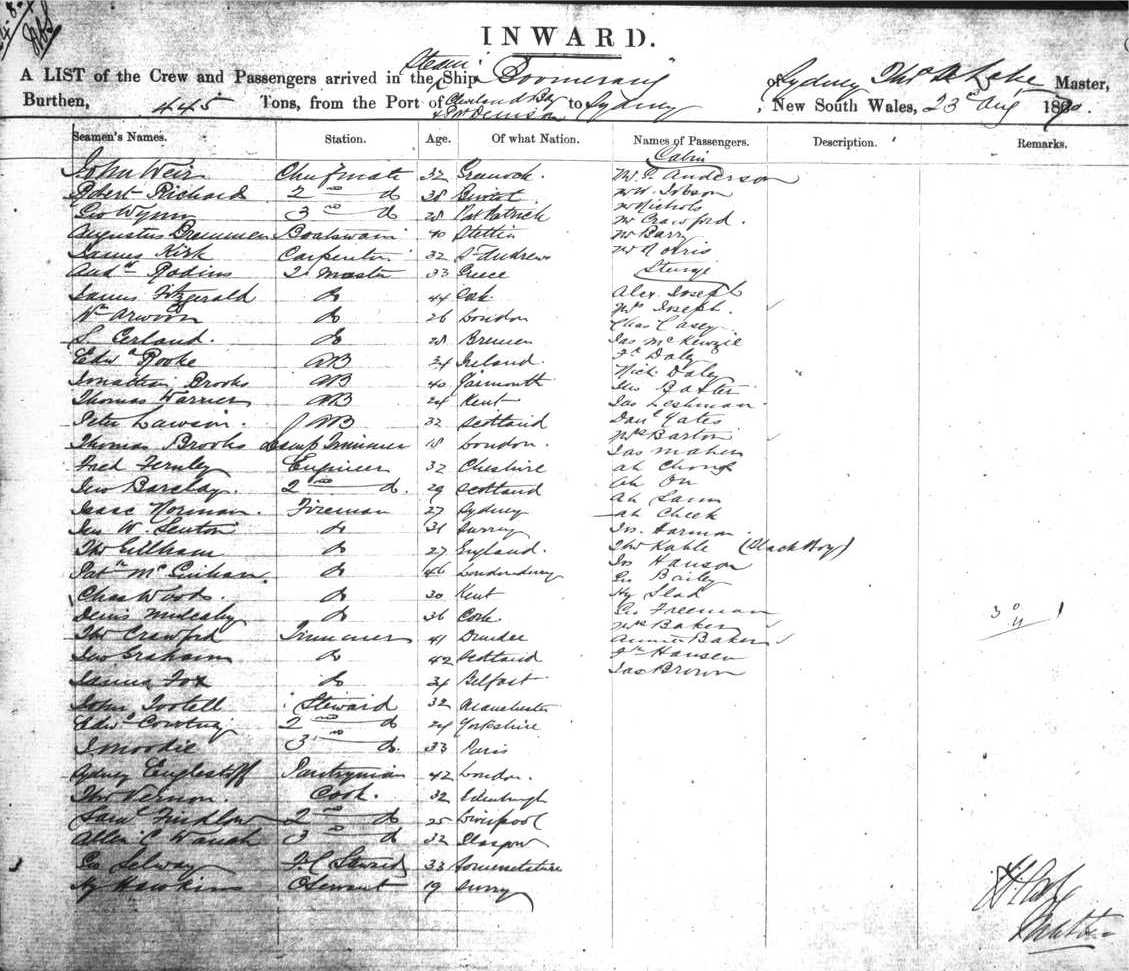 INWARD.
Steam
A LIST of the Crew and Passengers arrived in the Ship Boomerang of Sydney Thos A Lake Master,
Burthen, 445 Tons, from the Port of Cleveland Bay & Pt Denison to Sydney, New South Wales, 23rd Aug 1870.
Seamen's Names. Station. Age. Of what Nation. Names of Passengers. Description. Remarks.
Cabin
John Weir Chief mate 32 Greenock. Anderson
Robert Richard 2nd do 38 Bristol. Jobson
Geo Wynn 3rd do 28 Port Patrick Nichols
Augustus Boatswain 40 Stettin Crawford.
James Kirk Carpenter 32 St Andrews Barry
Andw Rodins Qr Master 33 Greece Norris
Steerage
James Fitzgerald do 44 Cork. Alex Joseph
Wm do 26 London Mrs Joseph.
S. Gerland. do 28 Bremen Chas Casey
Edwd Rooke AB 24 Ireland. Jas McKenzie
Jonathan Brooks AB 40 Yarmouth Daly
Thomas Warner AB 24 Kent Mich Daly
Peter Lawson. AB 32 Scotland Baxter
Thomas Brooks Lamp Trimmer 18 London. Jas Leshman
Fred Fernley Engineer 32 Cheshire Danl Yates
Jno Barclay. 2nd do. 29 Scotland Mrs Barton
Isaac Norman. Fireman 27 Sydney Jas Maher
Jno W. Senton do 31 Surrey Ah Chong
Thos Gillham do 27 England. Ah On
Patk do 46 Londonderry Ah Sam
Chas Woods. do 30 Kent Ah Cheek
Denis Mulcahy do 36 Cork. Jno. Harman
Thos Crawford Trimmer 41 Dundee Thos Kable (Black Boy)
Jno Graham do 42 Scotland Jno Hanson
James Fox do 24 Belfast Geo Bailey
John Tootell Steward 32 Manchester Hy Slad
Edwd Courtney 2nd do 24 Yorkshire Geo Freeman
J Moodie 3rd do. 33 Paris Mrs Baker
Sydney Pantryman 42 London. Annie Baker
Thos Vernon. Cook. 32 Edinburgh Hansen
Saml Findlow 2nd do 25 Liverpool Jas Brown
Allen C Waugh 3rd do 32 Glasgow
Geo Selway F.C Steward 33 Somersetshire
Hy Hawkins C Servant 19 Surrey